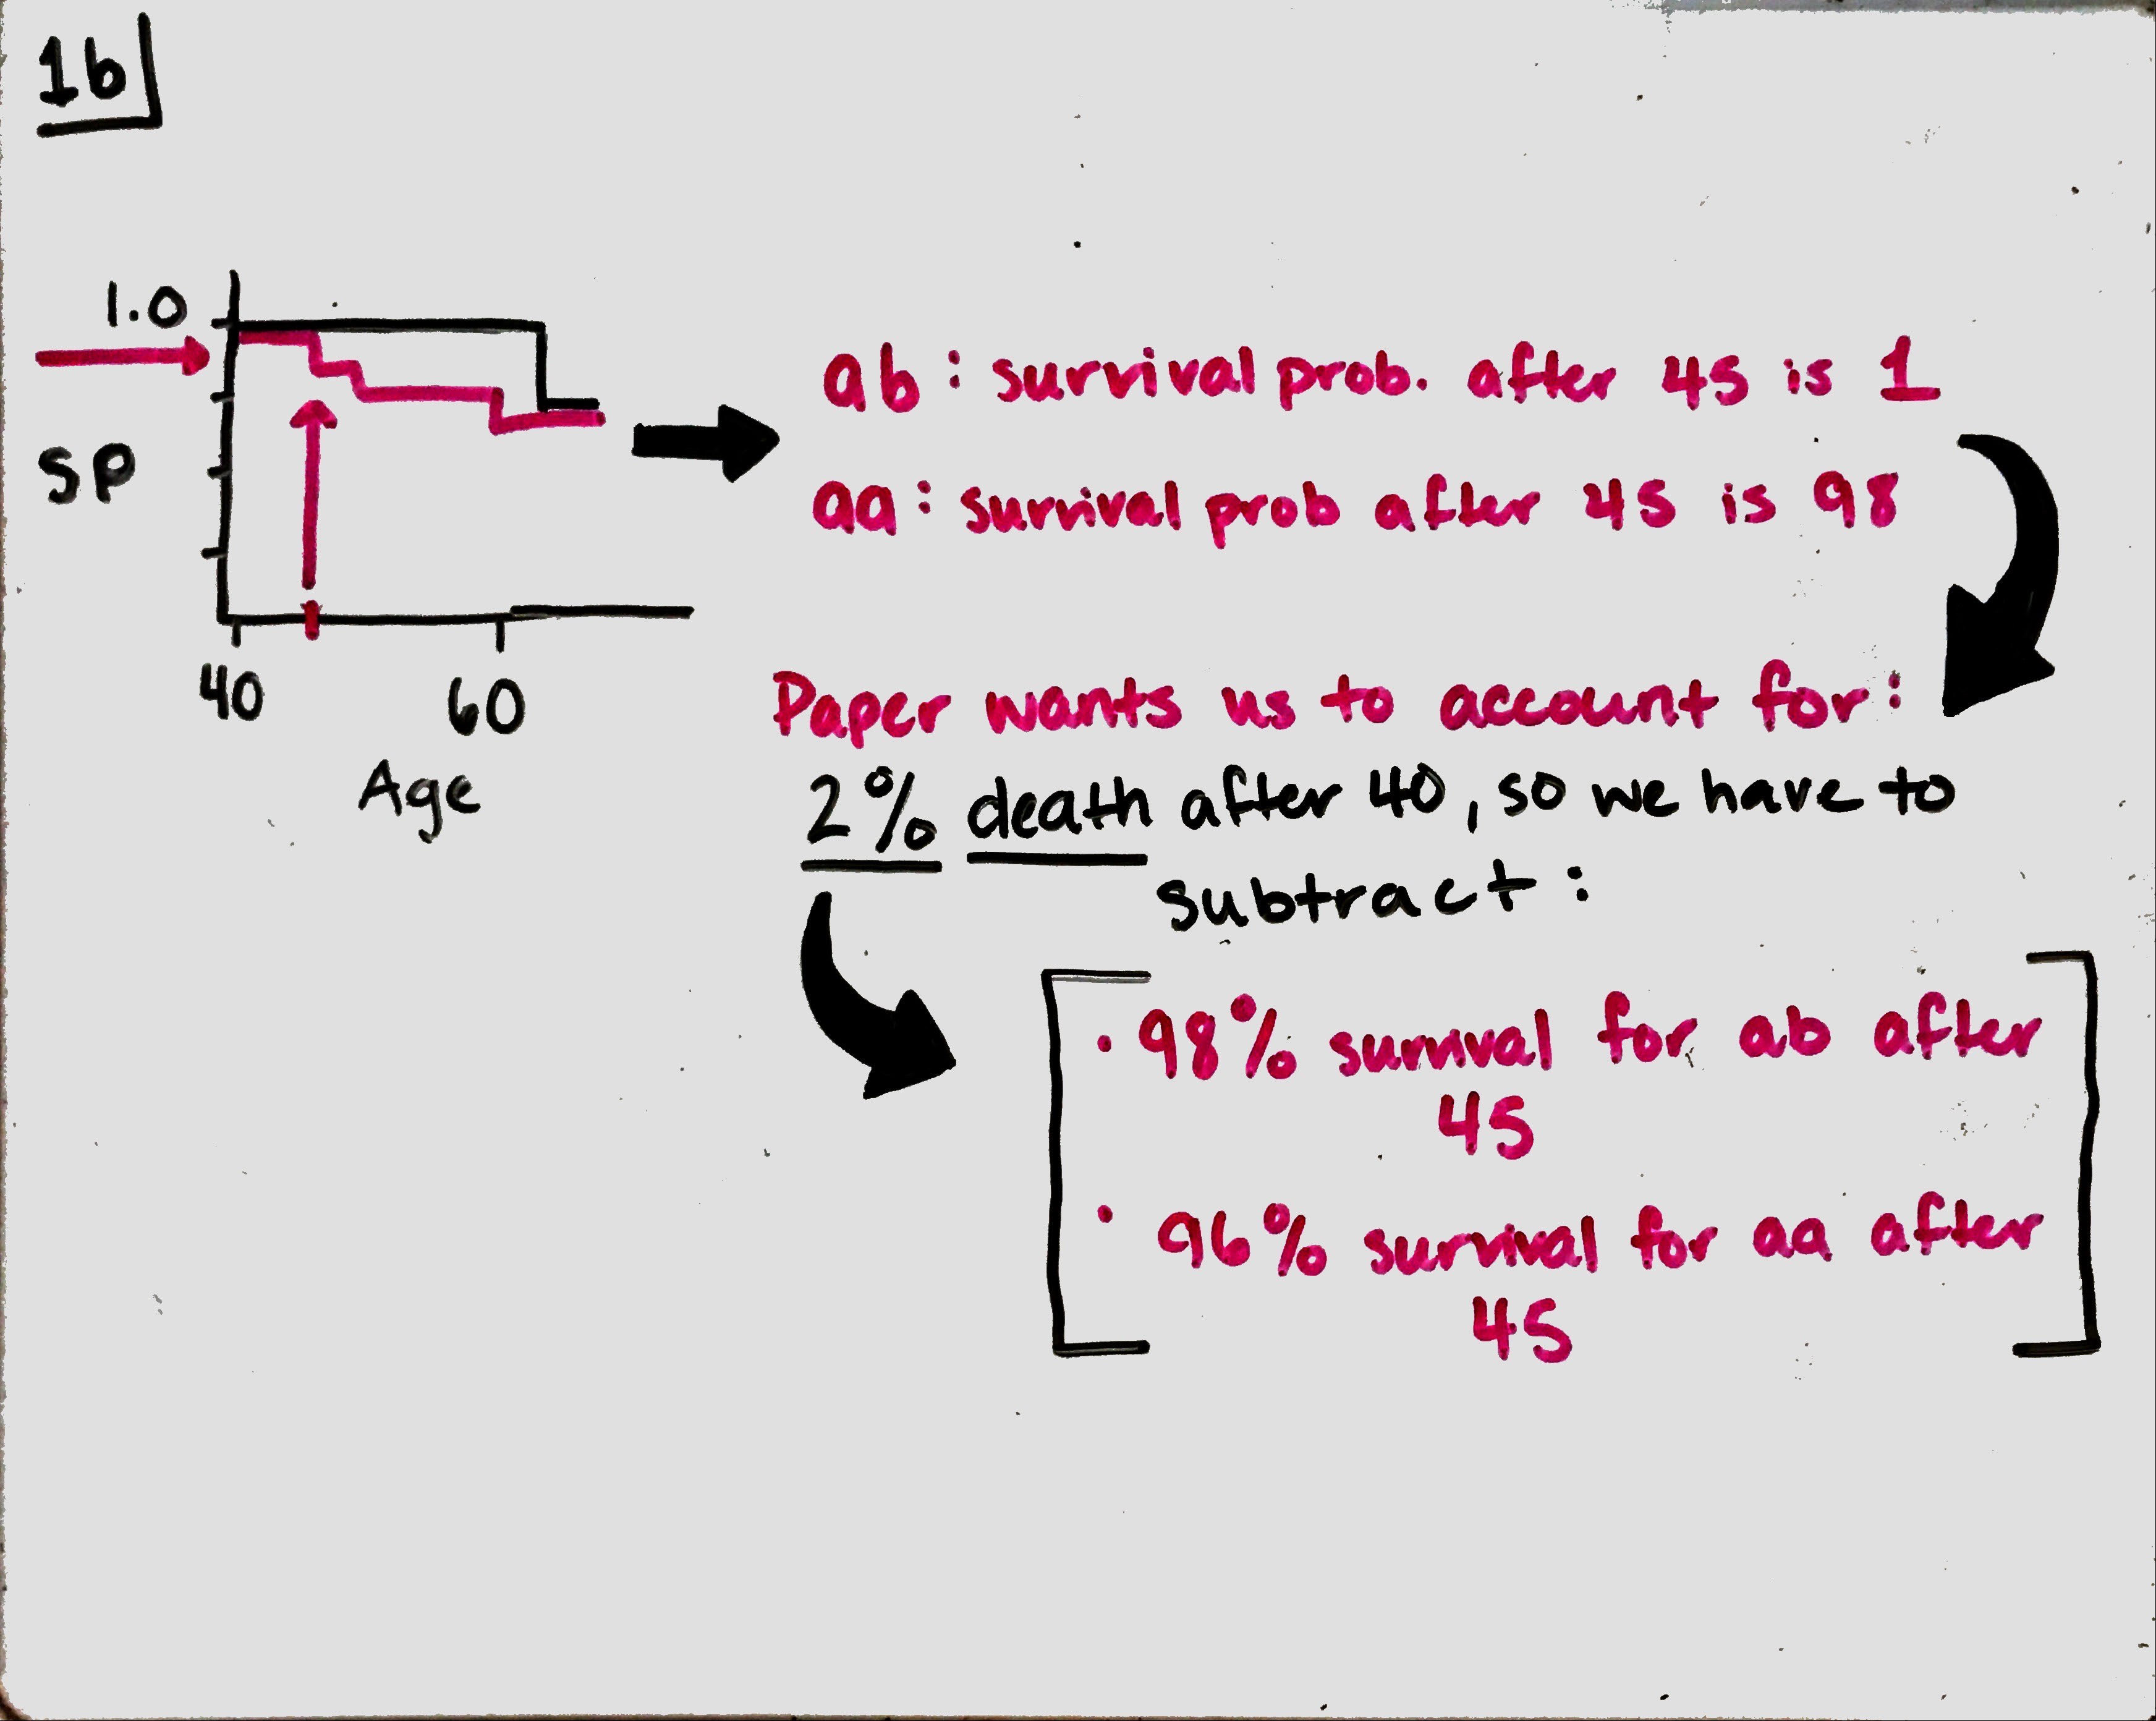 1b
1.0
SP
40 60
Age
ab: survival prob. after 45 is 1
aa: survival prob after 45 is 98
Paper wants us to account for:
2% death after 40, so we have to
subtract:
• 98% survival for ab after
45
• 96% survival for aa after
45